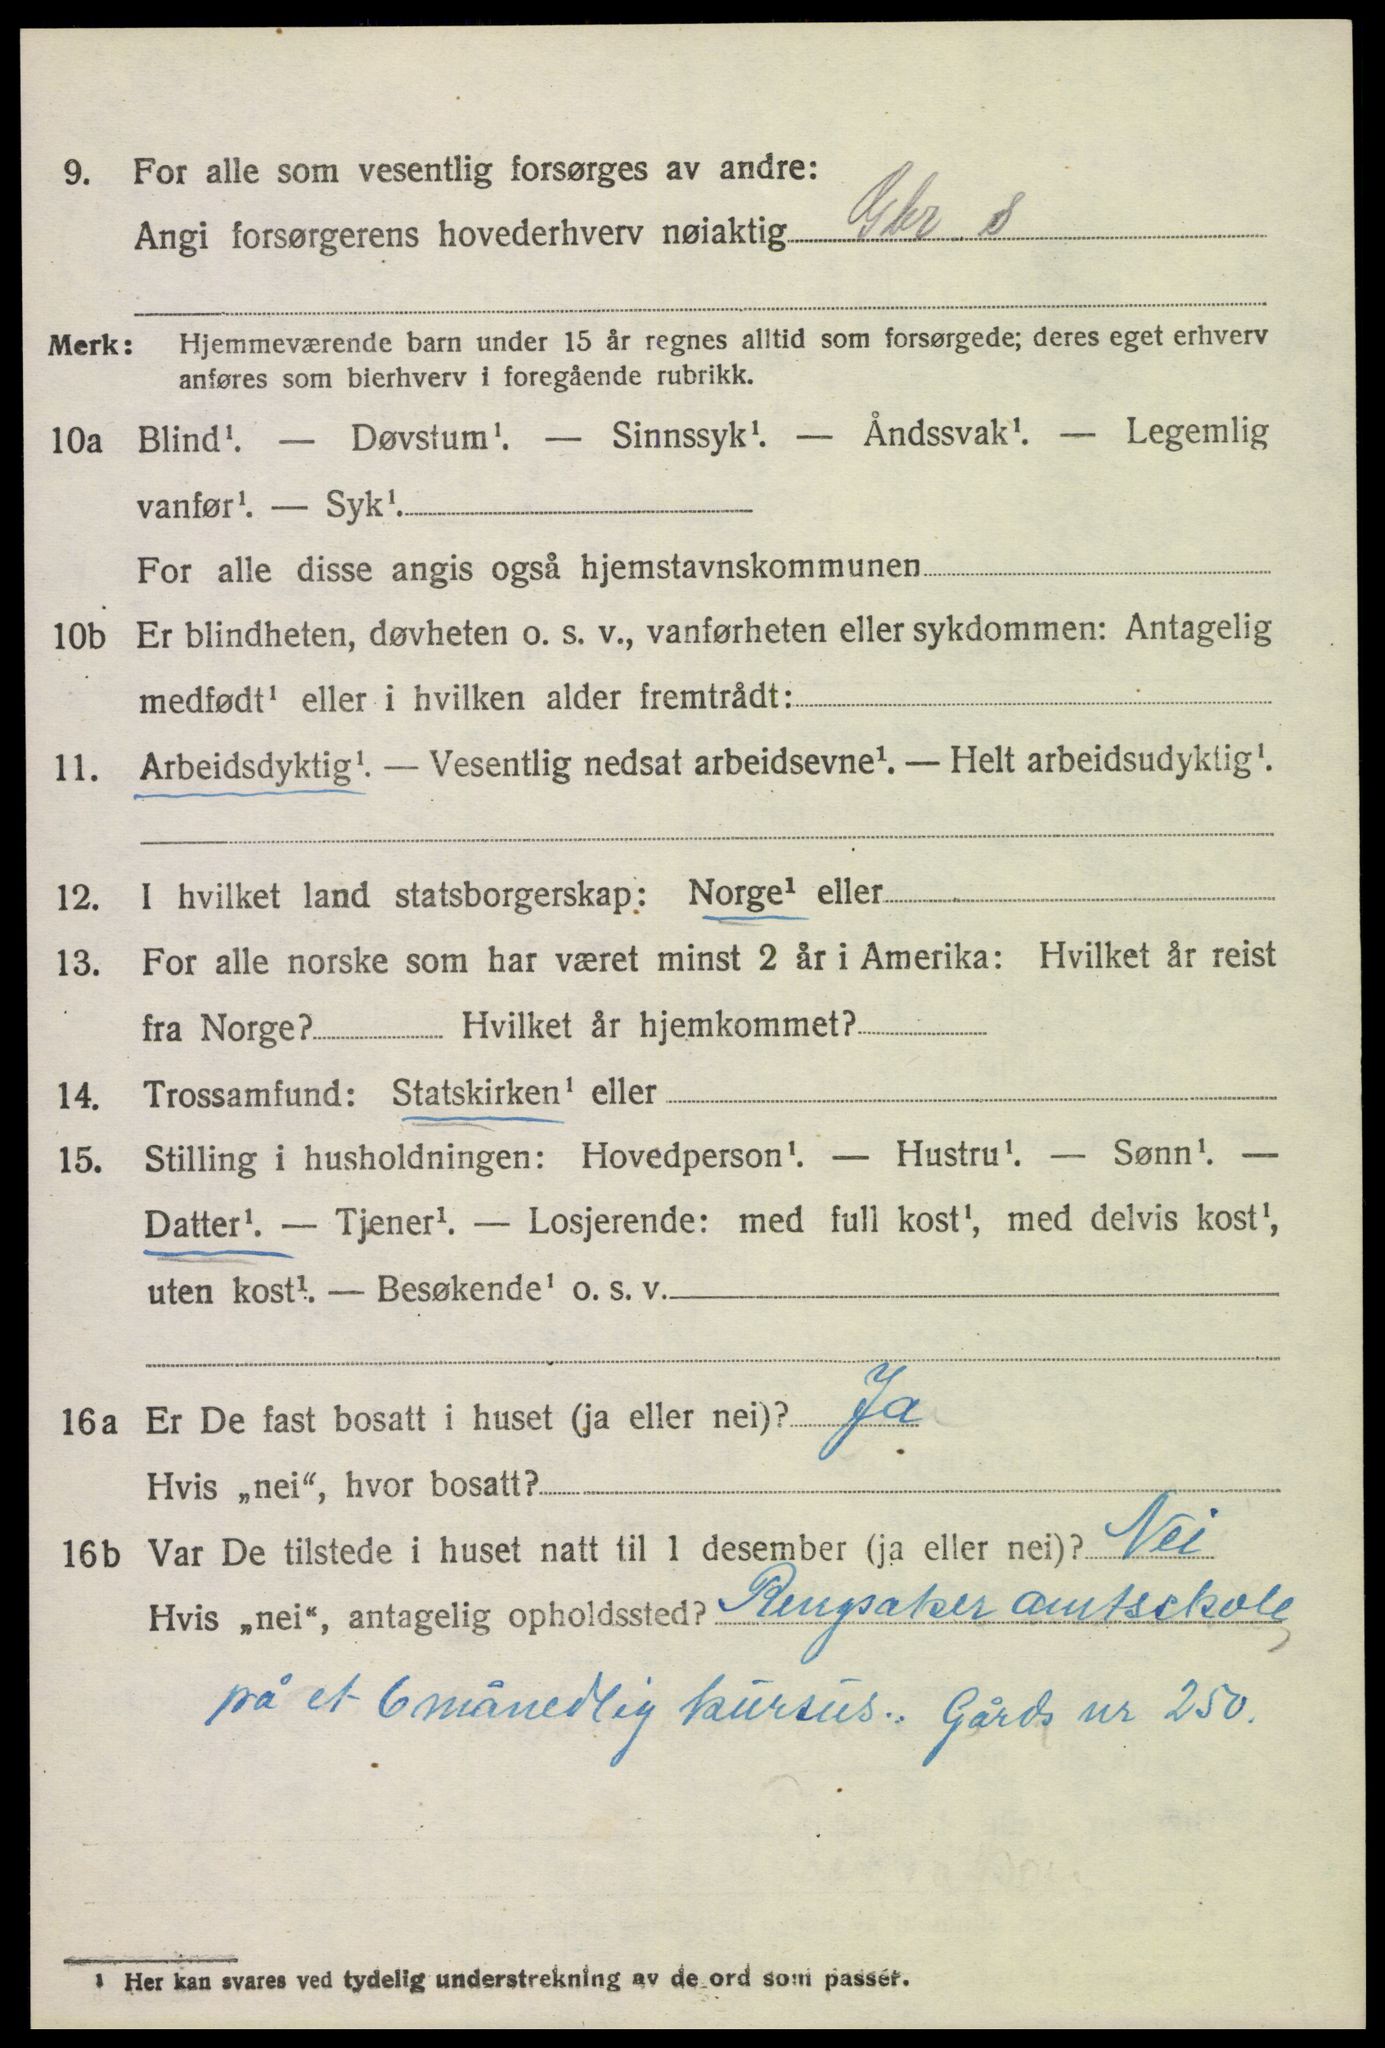 9. For alle som vesentlig forsørges av andre:
Angi forsørgerens hovederhverv nøiaktig Gbr s
Merk: Hjemmeværende barn under 15 år regnes alltid som forsørgede; deres eget erhverv
anføres som bierhverv i foregående rubrikk.
10a Blind¹. — Døvstum¹. — Sinnssyk¹. — Åndssvak¹. — Legemlig
vanfør¹. — Syk¹.
For alle disse angis også hjemstavnskommunen
10b Er blindheten, døvheten o. s. v., vanførheten eller sykdommen: Antagelig
medfødt¹ eller i hvilken alder fremtrådt:
11. Arbeidsdyktig¹. — Vesentlig nedsat arbeidsevne¹. — Helt arbeidsudyktig¹.
12. I hvilket land statsborgerskap: Norge¹ eller
13. For alle norske som har været minst 2 år i Amerika: Hvilket år reist
fra Norge? Hvilket år hjemkommet?
14. Trossamfund: Statskirken¹ eller
15. Stilling i husholdningen: Hovedperson¹. — Hustru¹. — Sønn¹. —
Datter¹. — Tjener¹. — Losjerende: med full kost¹, med delvis kost¹,
uten kost¹. — Besøkende¹ o. s. v.
16a Er De fast bosatt i huset (ja eller nei)? Ja
Hvis „nei“, hvor bosatt?
16b Var De tilstede i huset natt til 1 desember (ja eller nei)? Nei
Hvis „nei“, antagelig opholdssted? Ringsaker amtsskole
på et 6 månedlig kursus. Gårds nr 250.
¹ Her kan svares ved tydelig understrekning av de ord som passer.